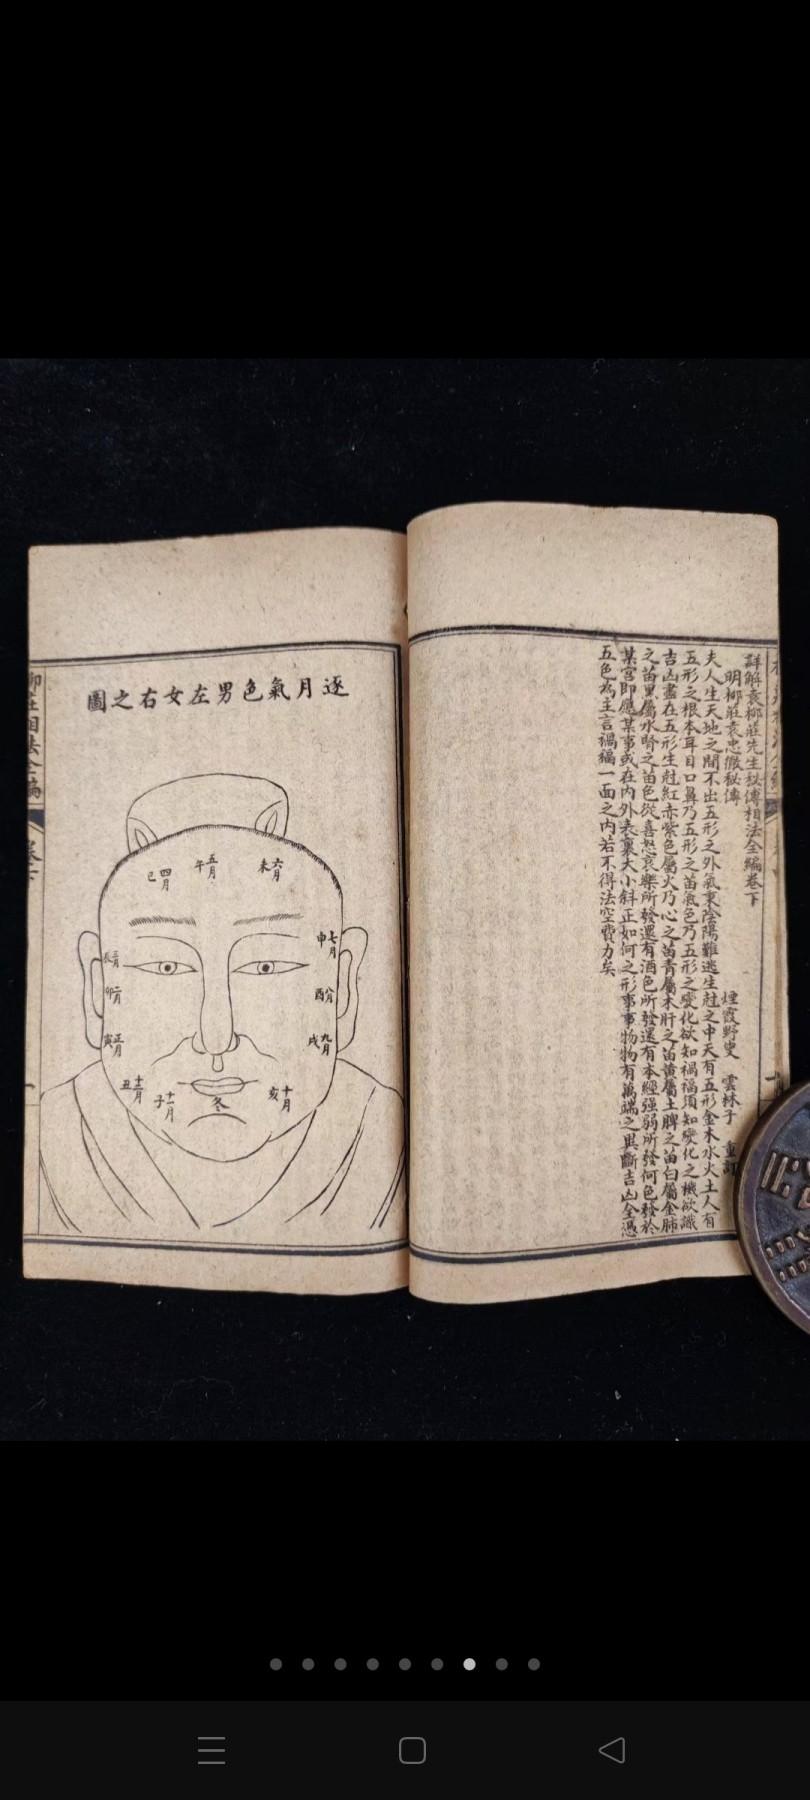 詳解袁柳莊先生秘傳相法全編卷下
明柳莊袁忠徹秘傳
煙霞野叟 雲林子 重訂
夫人生天地之間不出五形之外氣稟陰陽難逃生尅之中天有五形金木水火土人有
五形之根本耳目口鼻乃五形之苗氣色乃五形之變化欲知禍福須知變化之機欲識
吉凶盡在五形生尅紅赤紫色屬火乃心之苗青屬木肝之苗黃屬土脾之苗白屬金肺
之苗黑屬水腎之苗色從喜怒哀樂所發還有酒色所發還有本經強弱所發何色發於
某宮即應某事或在內外表裏大小斜正如何之形事事物物有萬端之異斷吉凶全憑
五色為主言禍福一面之內若不得法空費力矣
逐月氣色男左女右之圖
六月未
五月午
四月巳
三月辰
二月卯
正月寅
七月申
八月酉
九月戌
十月亥
十一月子
十二月丑
冬
柳莊相法全編
卷下